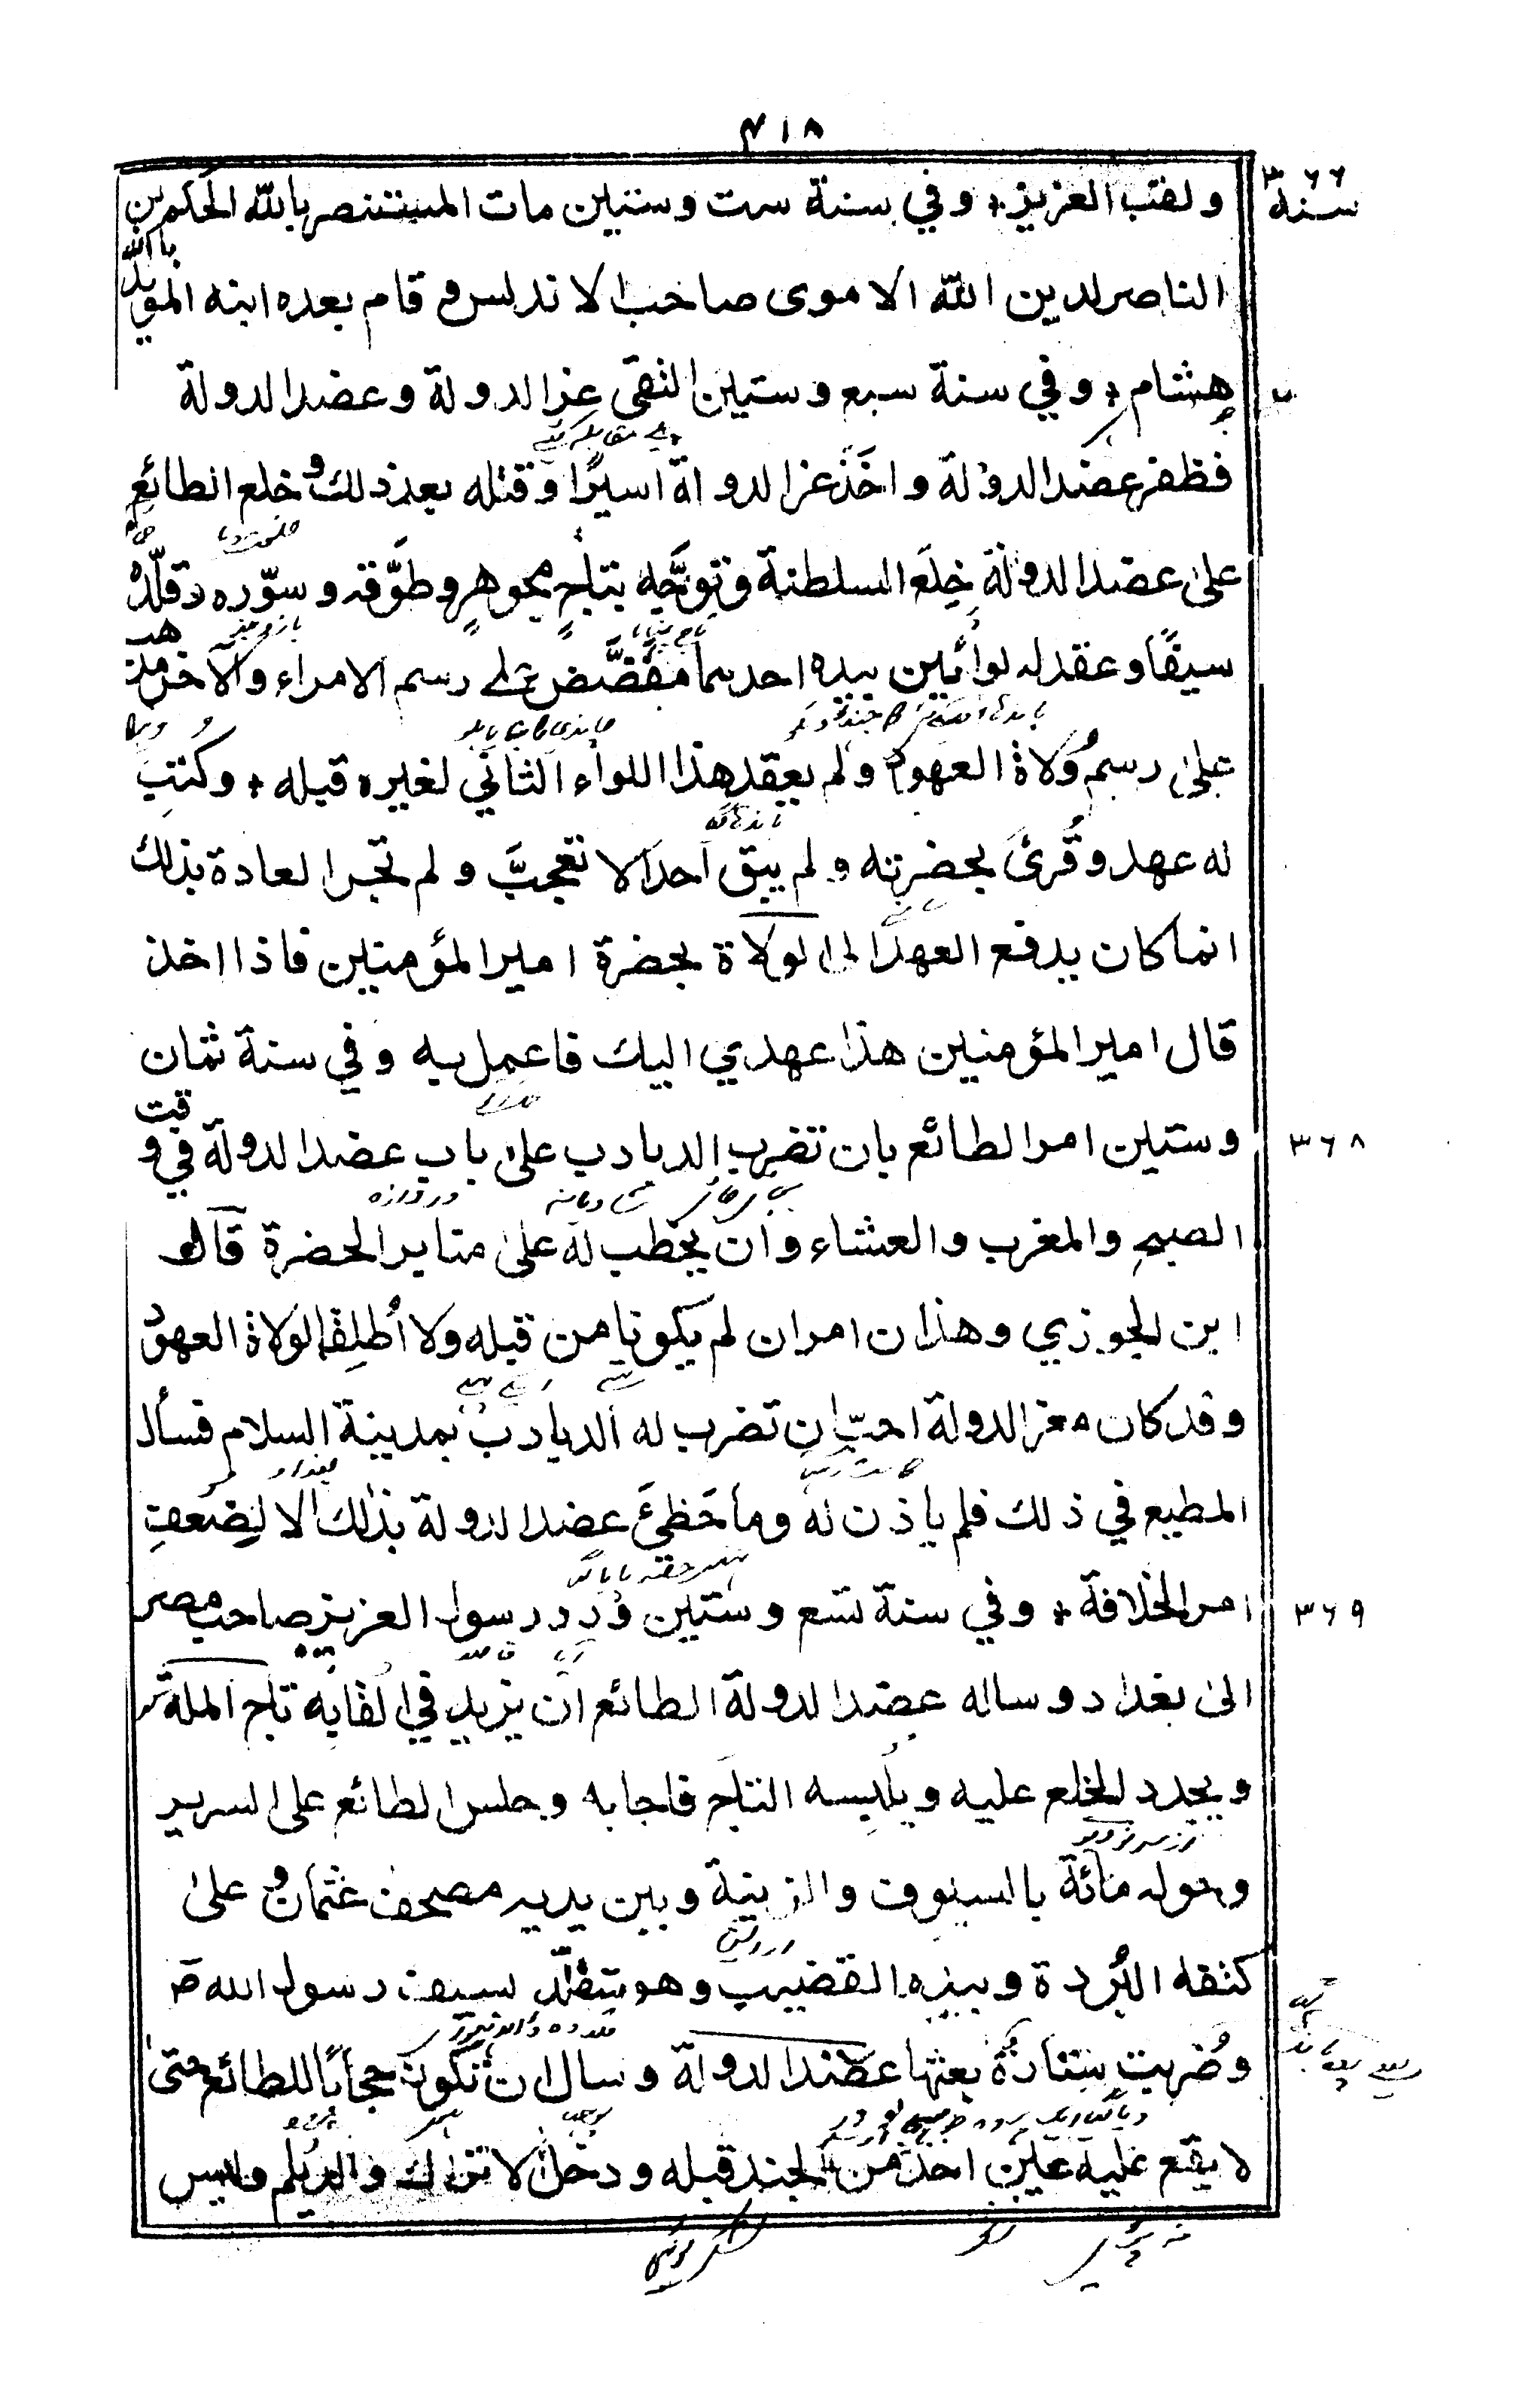 ٤١٨
سنة ٣٦٦
ولقب العزيز + وفي سنة ست وستين مات المستنصر بالله الحكم بن
الناصر لدين الله الاموى صاحب الاندلس و قام بعده ابنه المويد بالله
هشام + وفي سنة سبع وستين التقى عز الدولة وعضد الدولة
فظفر عضد الدولة واخذ عز الدولة اسيرًا وقتله بعد ذلك و خلع الطائع
على عضد الدولة خِلَع السلطنة وتوَّجه بتاجٍ مجوهرٍ وطوَّقه وسوّره وقلّده
سيفًا وعقد له لوائين بيده احدهما مفضَّض على رسم الامراء والآخر مذهب
على رسم وُلاة العهود ولم يعقد هذا اللواء الثاني لغيره قبله + وكُتِب
له عهد وقُرئَ بحضرته ولم يبق احد الا تعجبَّ ولم تجر العادة بذلك
انما كان يدفع العهد الى الولاة بحضرة امير المؤمنين فاذا اخذ
قال امير المؤمنين هذا عهدي اليك فاعمل به وفي سنة ثمان
٣٦٨
وستين امر الطائع بان تضرب الدبادب على باب عضد الدولة في وقت
الصبح والمغرب والعشاء وان يخطب له على منابر الحضرة قال
ابن الجوزي وهذان امران لم يكونا من قبله ولا أُطلِقا لولاة العهود
وقد كان معز الدولة احبّ ان تضرب له الدبادب بمدينة السلام فسأل
المطيع في ذلك فلم ياذن له وما حَظِيَ عضد الدولة بذلك الا لضعف
٣٦٩
امر الخلافة + وفي سنة تسع وستين ورد رسول العزيز صاحب مصر
الى بغداد وساله عضد الدولة الطائع ان يزيد في القابه تاج الملة
ويجدد الخلع عليه ويلبسه التاج فاجابه وجلس الطائع على السرير
وحوله مائة بالسيوف والزينة وبين يديه مصحف عثمان وعلى
كتفه البُردة وبيده القضيب وهو متقلّد بسيف رسول الله ص
وضُربت ستارة بعثها عضد الدولة وسال ان تكون حجابًا للطائع حتى
لا يقع عليه عين احد من الجند قبله ودخل الاتراك والديلم وليس